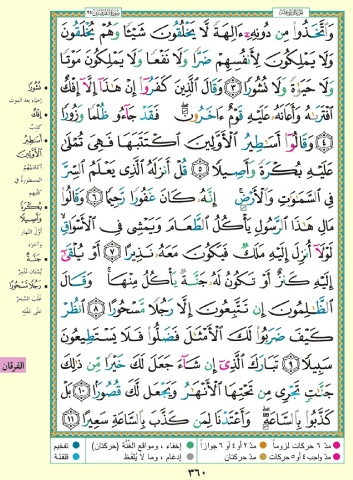 وَاتَّخَذُوا مِن دُونِهِ ءَالِهَةً لَّا يَخْلُقُونَ شَيْئًا وَهُمْ يُخْلَقُونَ
وَلَا يَمْلِكُونَ لِأَنفُسِهِمْ ضَرًّا وَلَا نَفْعًا وَلَا يَمْلِكُونَ مَوْتًا
وَلَا حَيَاةً وَلَا نُشُورًا ٣ وَقَالَ الَّذِينَ كَفَرُوا إِنْ هَٰذَا إِلَّا إِفْكٌ
افْتَرَاهُ وَأَعَانَهُ عَلَيْهِ قَوْمٌ ءَاخَرُونَ ۖ فَقَدْ جَاءُو ظُلْمًا وَزُورًا
٤ وَقَالُوا أَسَاطِيرُ الْأَوَّلِينَ اكْتَتَبَهَا فَهِيَ تُمْلَىٰ
عَلَيْهِ بُكْرَةً وَأَصِيلًا ٥ قُلْ أَنزَلَهُ الَّذِي يَعْلَمُ السِّرَّ
فِي السَّمَاوَاتِ وَالْأَرْضِ ۚ إِنَّهُ كَانَ غَفُورًا رَّحِيمًا ٦ وَقَالُوا
مَالِ هَٰذَا الرَّسُولِ يَأْكُلُ الطَّعَامَ وَيَمْشِي فِي الْأَسْوَاقِ ۙ
لَوْلَا أُنزِلَ إِلَيْهِ مَلَكٌ فَيَكُونَ مَعَهُ نَذِيرًا ٧ أَوْ يُلْقَىٰ
إِلَيْهِ كَنزٌ أَوْ تَكُونُ لَهُ جَنَّةٌ يَأْكُلُ مِنْهَا ۚ وَقَالَ
الظَّالِمُونَ إِن تَتَّبِعُونَ إِلَّا رَجُلًا مَّسْحُورًا ٨ انظُرْ
كَيْفَ ضَرَبُوا لَكَ الْأَمْثَالَ فَضَلُّوا فَلَا يَسْتَطِيعُونَ
سَبِيلًا ٩ تَبَارَكَ الَّذِي إِن شَاءَ جَعَلَ لَكَ خَيْرًا مِّن ذَٰلِكَ
جَنَّاتٍ تَجْرِي مِن تَحْتِهَا الْأَنْهَارُ وَيَجْعَل لَّكَ قُصُورًا ١٠ بَلْ
كَذَّبُوا بِالسَّاعَةِ ۖ وَأَعْتَدْنَا لِمَن كَذَّبَ بِالسَّاعَةِ سَعِيرًا ١١
نُشُورًا
إحياء بعد الموت
إِفْكٌ
كذب
أَسَاطِيرُ
الْأَوَّلِينَ
بُكْرَةً
وَأَصِيلًا
أول النهار
وآخره
جَنَّةٌ
بستان مثمر
رَجُلًا مَّسْحُورًا
غلب السحر
على عقله
الفرقان
مدّ ٦ حركات لزوماً
مدّ ٢ أو ٤ أو ٦ جوازاً
إخفاء، ومواقع الغُنَّة (حركتان)
تفخيم
مدّ واجب ٤ أو ٥ حركات
مدّ حركتان
إدغام، وما لا يُلفَظ
قلقلة
٣٦٠